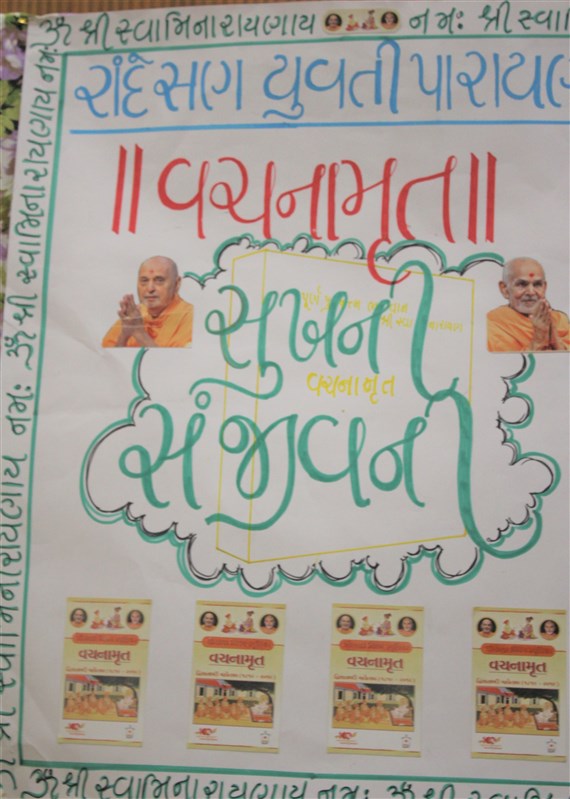 ૐ શ્રી સ્વામિનારાયણાય નમઃ શ્રી સ્વા
રાંદેસણ યુવતી પારાયણ
॥ વચનામૃત ॥
સુખની
વચનામૃત
સંજીવની
વચનામૃત
વચનામૃત
વચનામૃત
વચનામૃત
ૐ શ્રી સ્વામિનારાયણાય નમઃ ૐ શ્રી સ્વામિનારાયણાય નમઃ
ૐ શ્રી સ્વામિનારાયણાય નમઃ ૐ શ્રી સ્વામિ